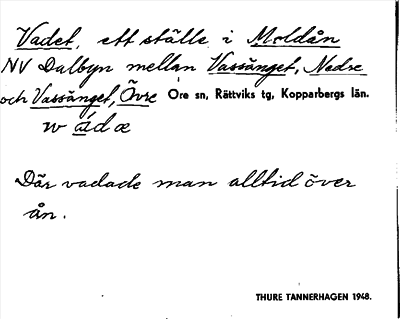 Vadet, ett ställe i Moldån
NV Dalbyn mellan Vassänget, Nedre
och Vassänget, Övre Ore sn, Rättviks tg, Kopparbergs län.
wádæ
Där vadade man alltid över
ån.
THURE TANNERHAGEN 1948.